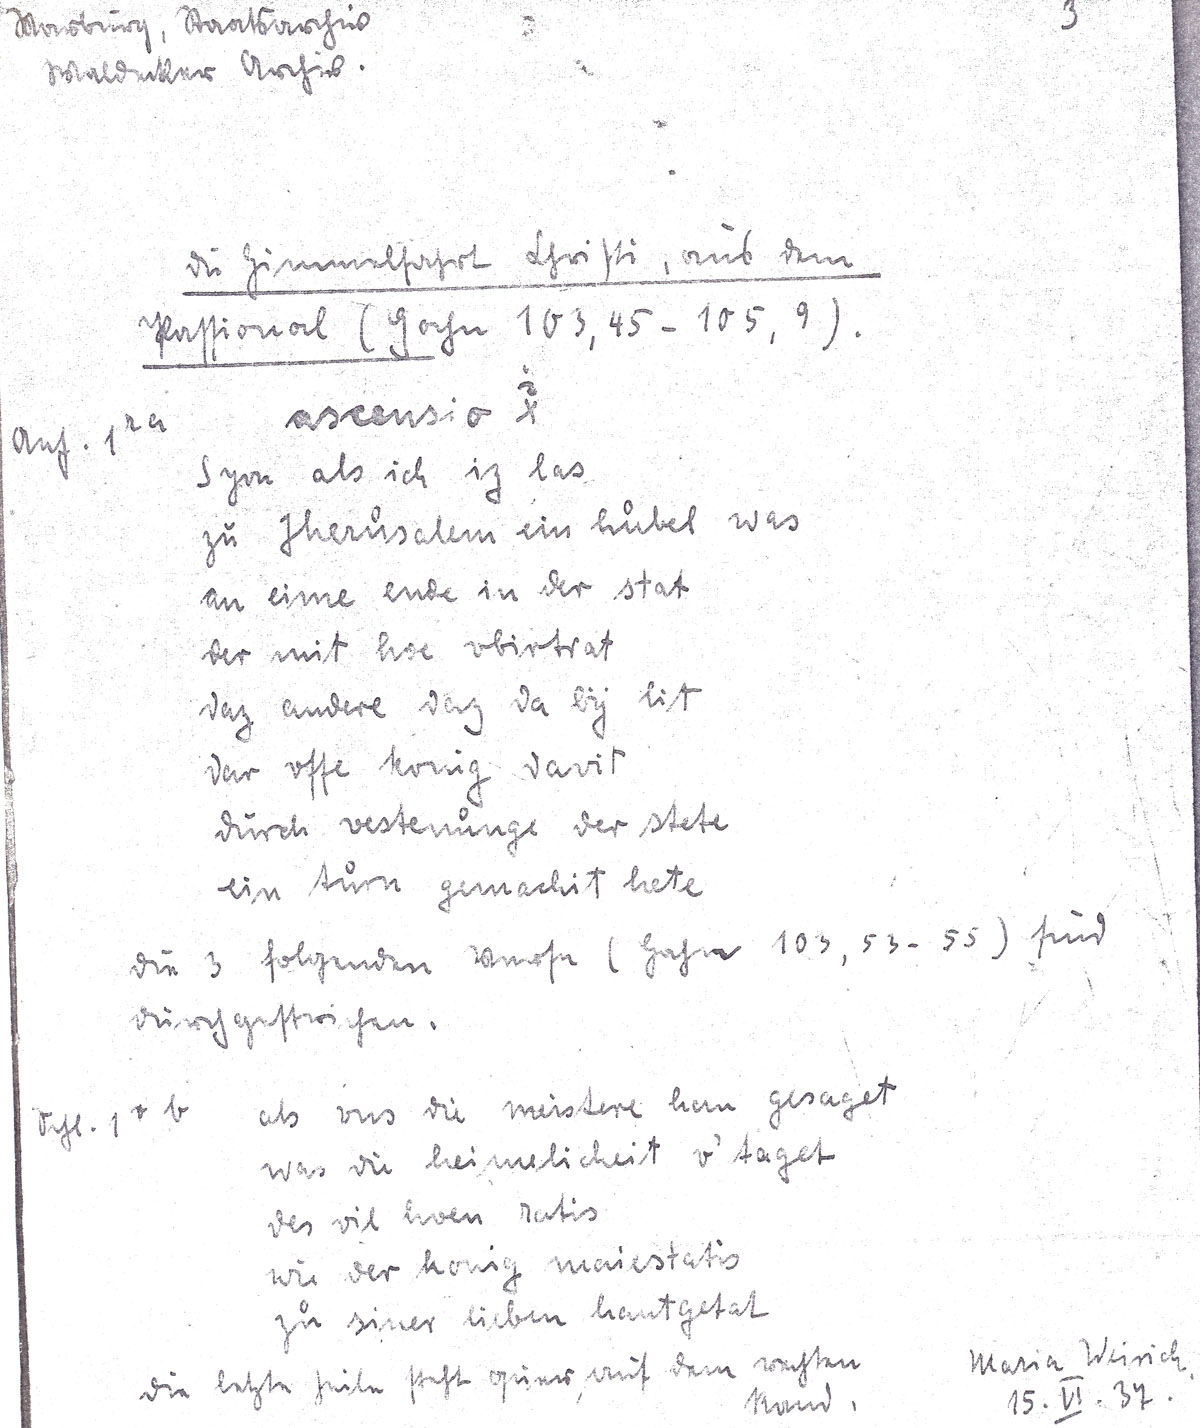 Marburg, Staatsarchiv
3
Waldecker Archiv.
die Himmelfahrt Christi, aus dem
Passional (Hahn 103,45-105,9).
ascensio
Anf. 1ra
Syon als ich iz las
zů Jherůsalem ein hůbel was
an eime ende in der stat
der mit hoe vbirtrat
daz andere daz da bij lit
dar vffe konig davit
durch vestenůnge der stete
ein tůrn gemachit hete
die 3 folgenden Verse (Hahn 103,53-55) sind
durchgestrichen.
Schl. 1vb
als vns die meistere han gesaget
was die heimelicheit v'taget
des vil hoen ratis
wie der konig maiestatis
zů siner lieben hantgetat
die letzte Zeile steht quer, auf dem rechten
Rand.
Maria Weirich,
15. VI. 37.